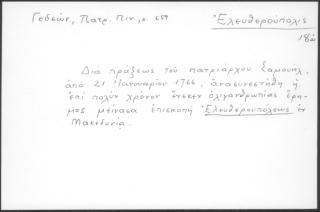 Γεδεών, Πατρ. Πιν., σ. 659
Ἐλευθερούπολις
18ῳ
Διὰ πράξεως τοῦ πατριάρχου Σαμουὴλ,
ἀπὸ 21 Ἰανουαρίου 1766, ἀνασυνεστήθη ἡ
ἐπὶ πολὺν χρόνον ἕνεκεν ὀλιγανθρωπίας ἔρη-
μος μείνασα ἐπισκοπὴ Ἐλευθερουπόλεως ἐν
Μακεδονίᾳ.